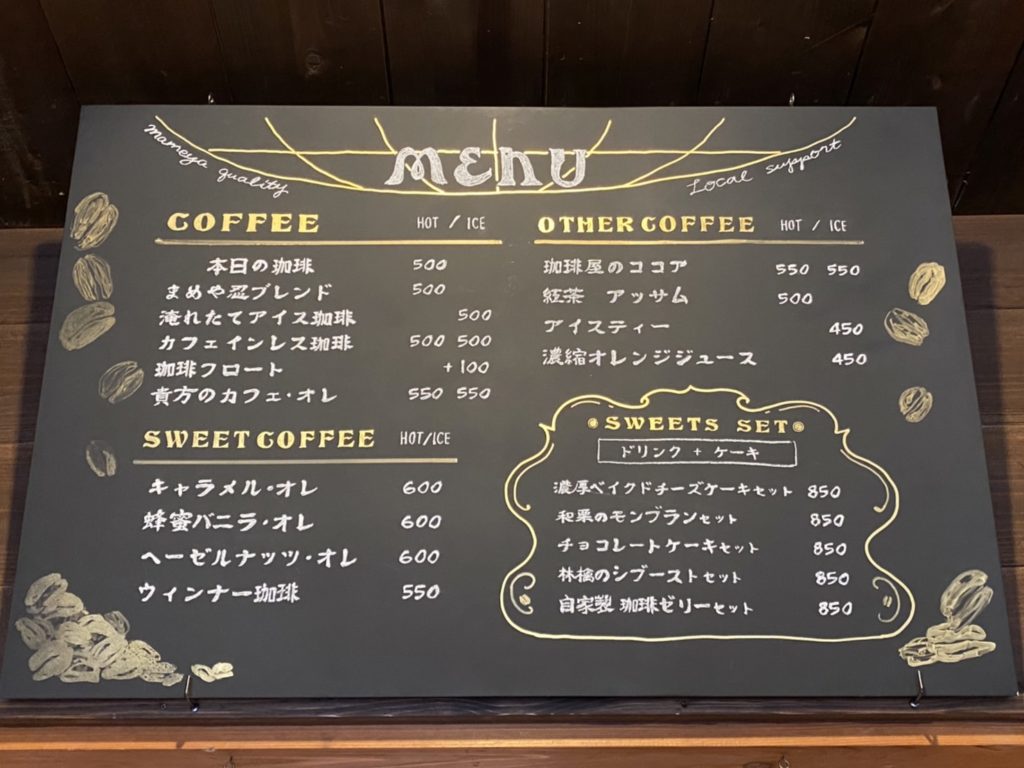 MENU
mameya quality
Local support
COFFEE HOT / ICE
本日の珈琲 500
まめや忍ブレンド 500
淹れたてアイス珈琲 500
カフェインレス珈琲 500 500
珈琲フロート +100
貴方のカフェ・オレ 550 550
SWEET COFFEE HOT/ICE
キャラメル・オレ 600
蜂蜜バニラ・オレ 600
ヘーゼルナッツ・オレ 600
ウィンナー珈琲 550
OTHER COFFEE HOT / ICE
珈琲屋のココア 550 550
紅茶 アッサム 500
アイスティー 450
濃縮オレンジジュース 450
SWEETS SET
ドリンク + ケーキ
濃厚ベイクドチーズケーキセット 850
和栗のモンブランセット 850
チョコレートケーキセット 850
林檎のシブーストセット 850
自家製 珈琲ゼリーセット 850